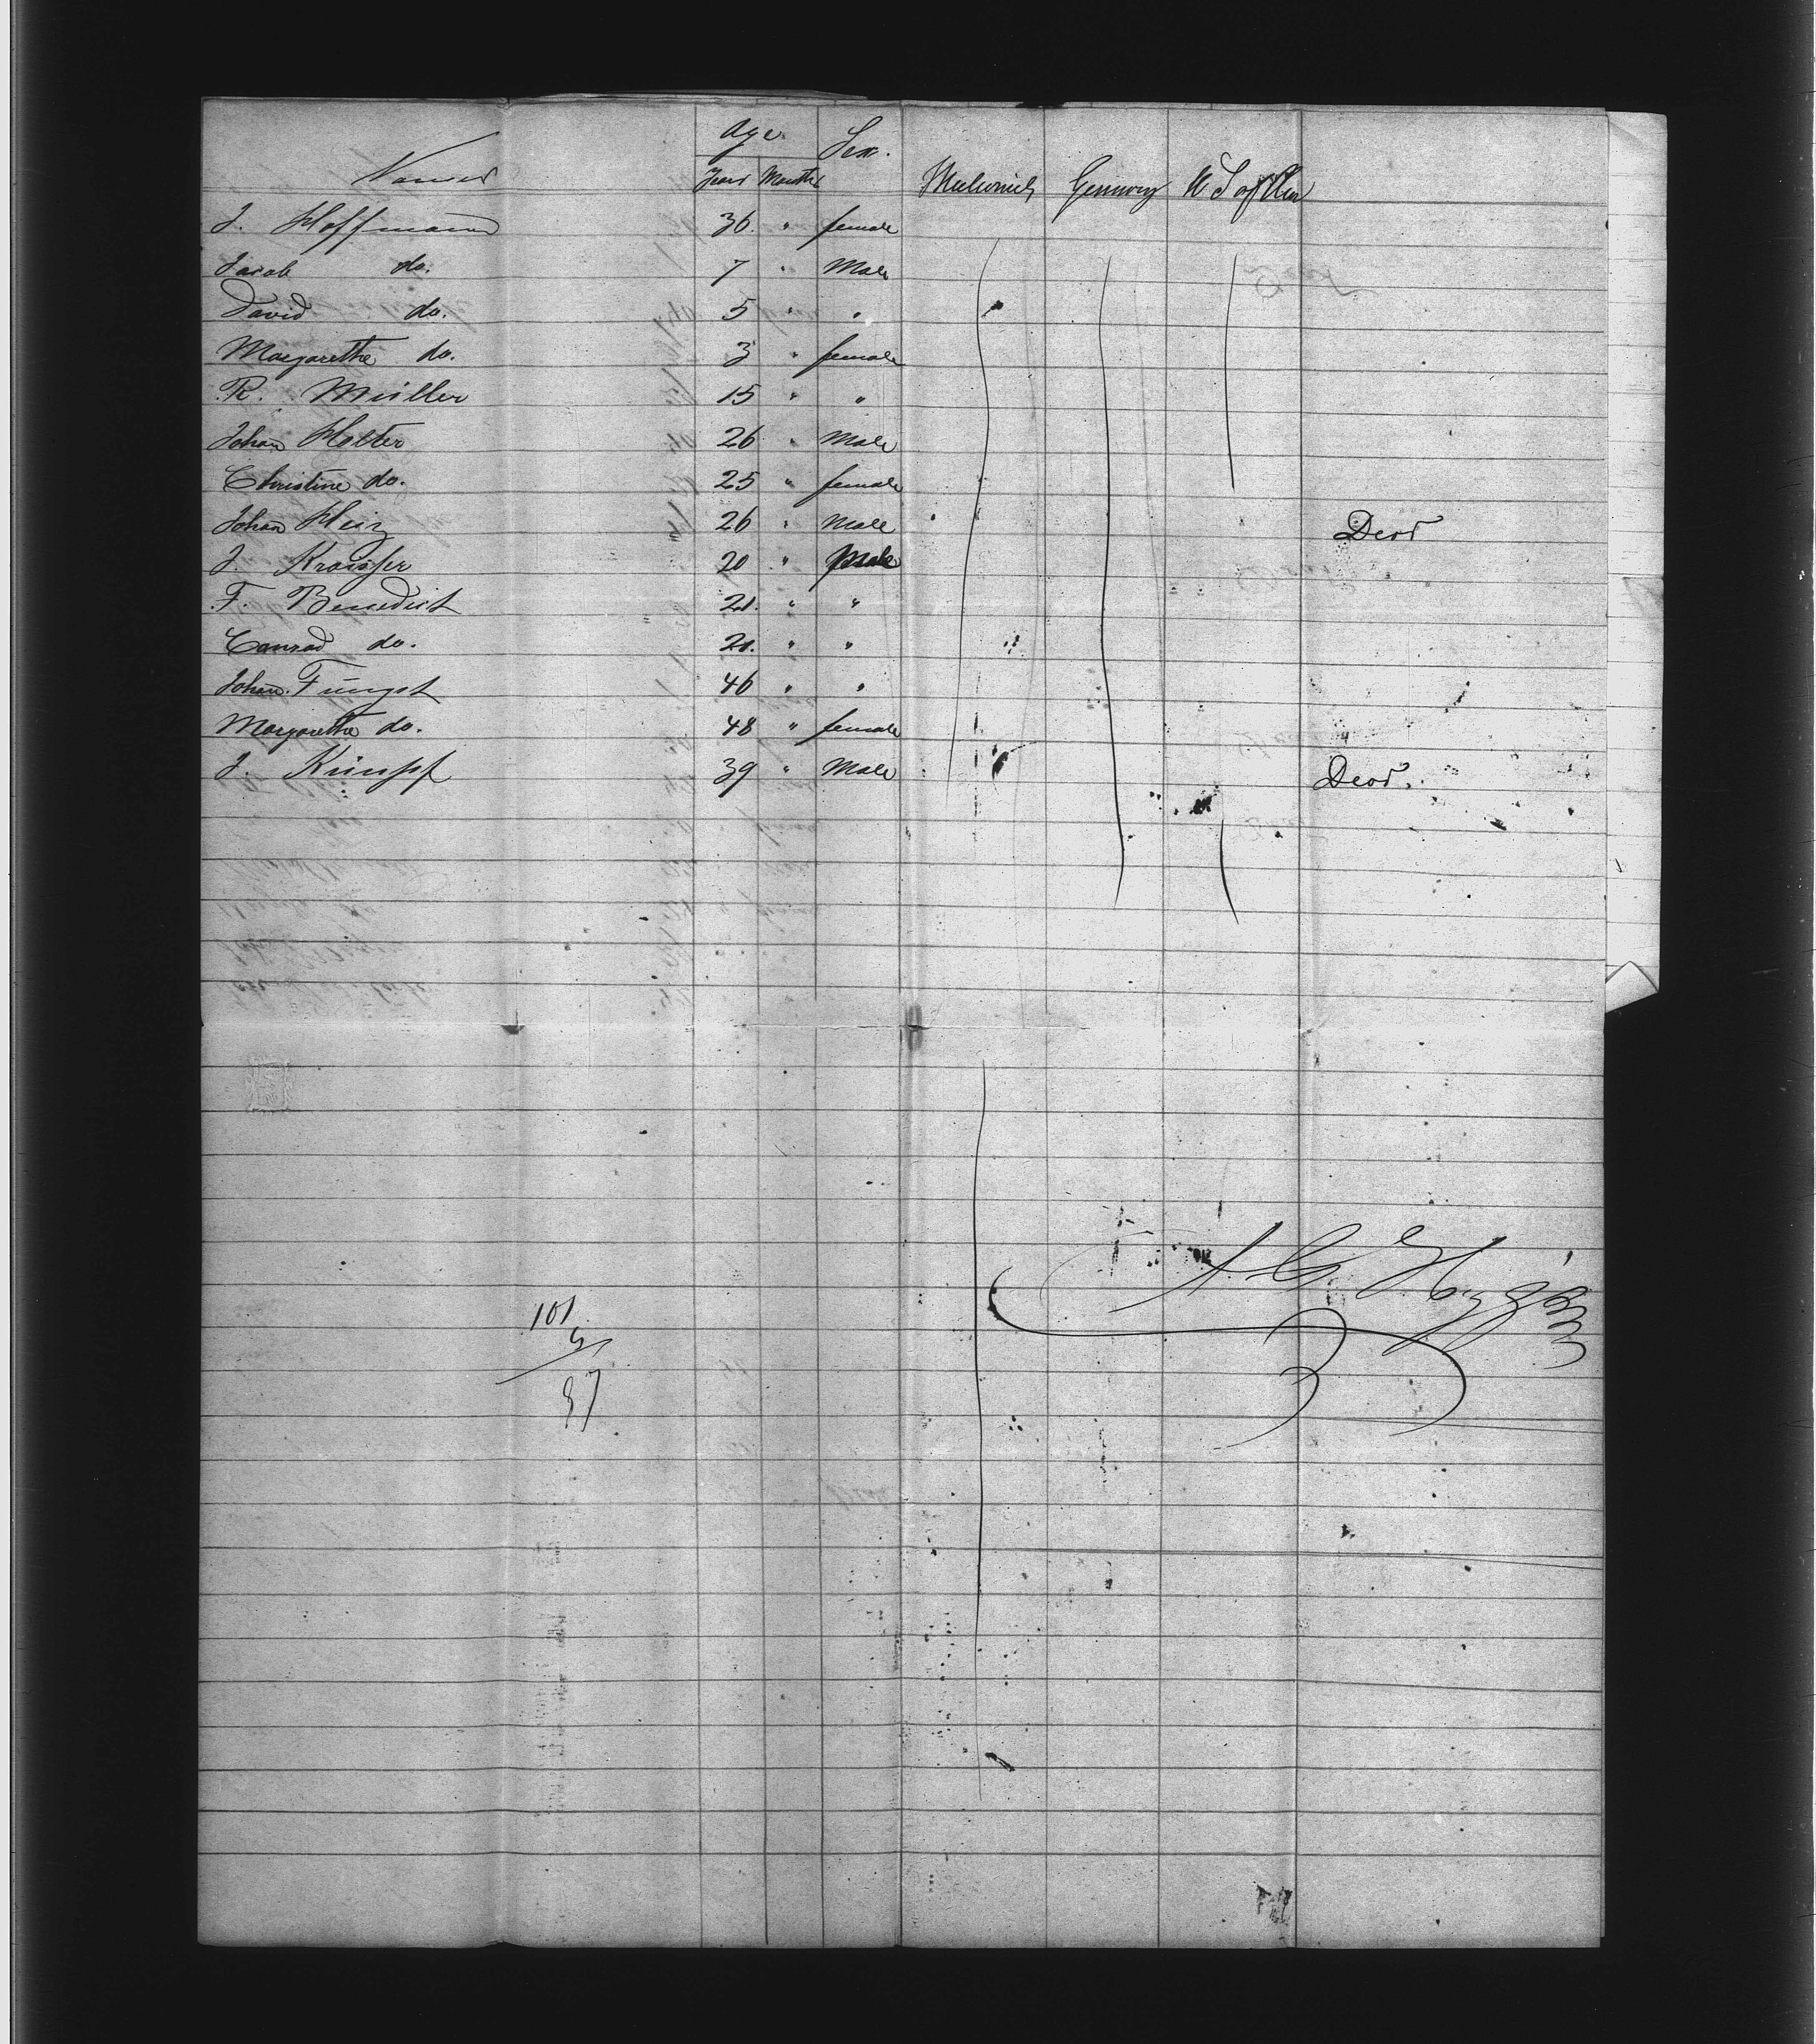 Names Age Sex.
Years Months Mechanich Germany U S of Am
J. Hoffmann 36 " female
Jacob do. 7 " Male
David do. 5 " "
Margarethe do. 3 " female
R. Müller 15 " "
Johan Holter 26 " Male
Christine do. 25 " female
Johan Heiz 26 " Male Dead
J. Kraisser 20 " Male
F. Benedict 21. " "
Conrad do. 21. " "
Johan. Füngst 46 " "
Margarethe do. 48 " female
J. Kümpf 39 " Male Dead.
101
97